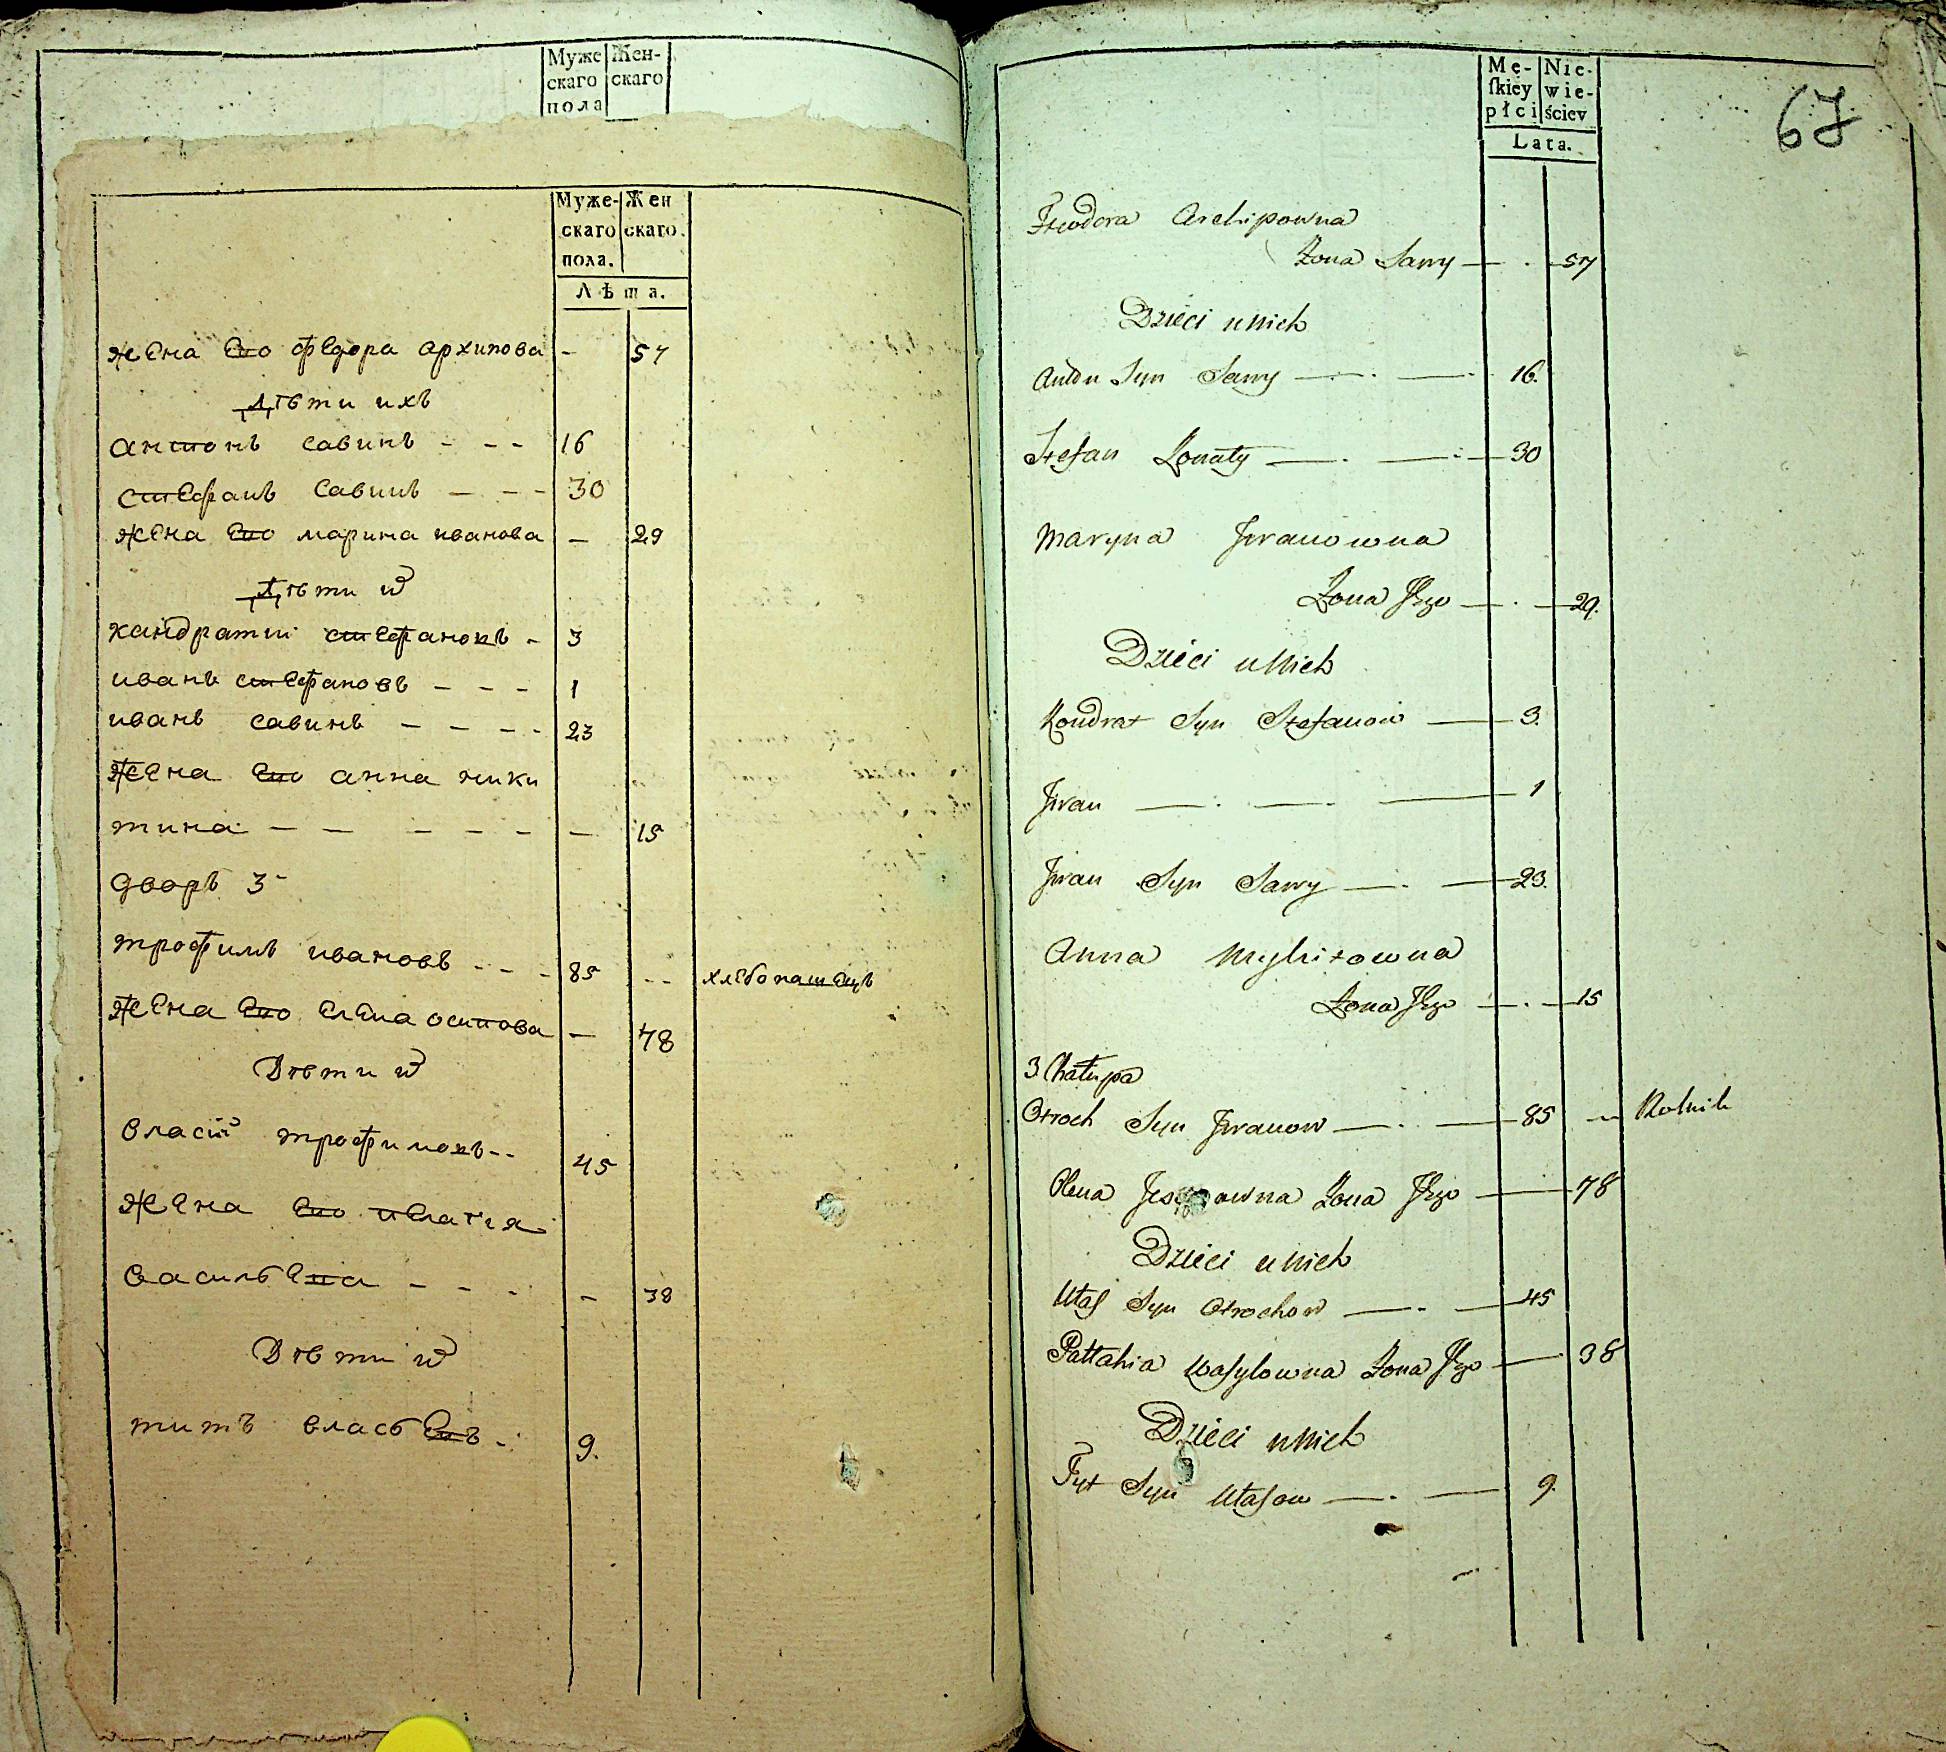 Муже Жен-
скаго скаго
пола
Муже- Жен
скаго скаго.
пола.
Лѣта.
жена Его федора архипова - 57
дѣти ихъ
антонъ савинъ - - - 16
стефанъ савинъ - - - 30
жена Его марина иванова - 29
дѣти ихъ
кандратии стефановъ - 3
иванъ стефановъ - - - 1
иванъ савинъ - - - - 23
жена Его анна ники
тина - - - - - - 15
дворъ 3-
трофимъ ивановъ - - - 85 -- хлебопашецъ
жена Его Елена осипова - 78
Дѣти ихъ
власий трофимовъ -- 45
жена Его пелагия
васильева - - - - 38
Дѣти ихъ
титъ власьевъ -. 9.
Mę- Nie-
ſkiey wie-
płci ściey
Lata.
67
Fieodora Archipowna
Zona Sawy — . — 57
Dzieci u nich
Anton Syn Sawy — . — . 16.
Stefan Zonaty — . — . — 30
Maryna Jwanowna
Zona Jego — . — 29.
Dzieci u Nich
Kondrat Syn Stefanow — 3.
Jwan — . — . — 1
Jwan Syn Sawy — . — 23.
Anna Mykitowna
Zona Jego — . — 15
3 Chatupa
Otroch Syn Jwanow — . — 85 — Rolnik
Olena Jes owna Zona Jego — 78
Dzieci u nich
Utas Syn Otrochow — . — 45
Pattahia Wasylowna Zona Jego — 38
Dzieci u Nich
Tyt Syn Utasow — . — 9.